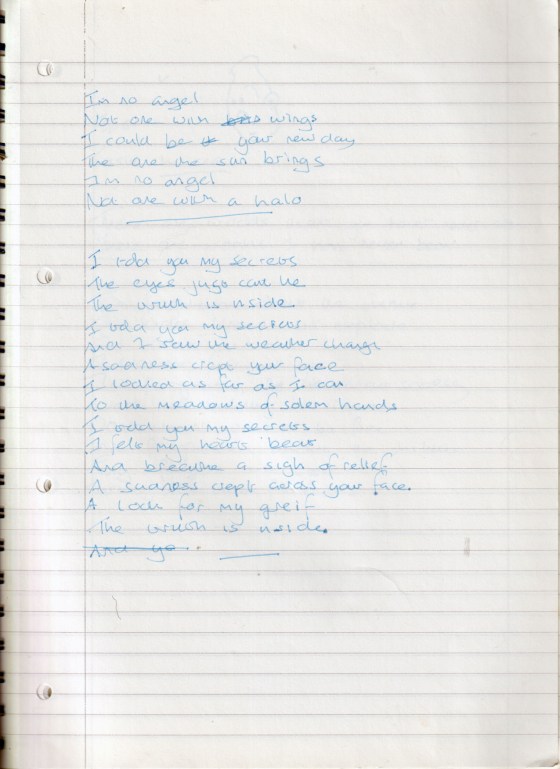 I'm no angel
Not one with wings
I could be your new day
The one the sun brings
I'm no angel
Not one with a halo
I told you my secrets
The eyes just can't lie
The truth is inside
I told you my secrets
And I saw the weather change
A sadness crept your face
I looked as far as I can
To the meadows of solem hands
I told you my secrets
I felt my heart beat
And breathe a sigh of relief
A sadness crept across your face.
A look for my greif
The truth is inside.